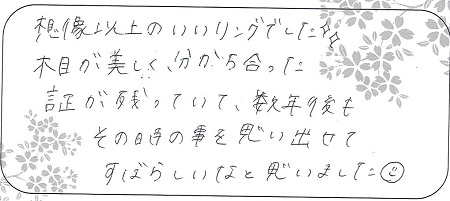 想像以上のいいリングでした☆☆
木目が美しく、分かち合った
証が残っていて、数年後も
その時の事を思い出せて
すばらしいなと思いました☺